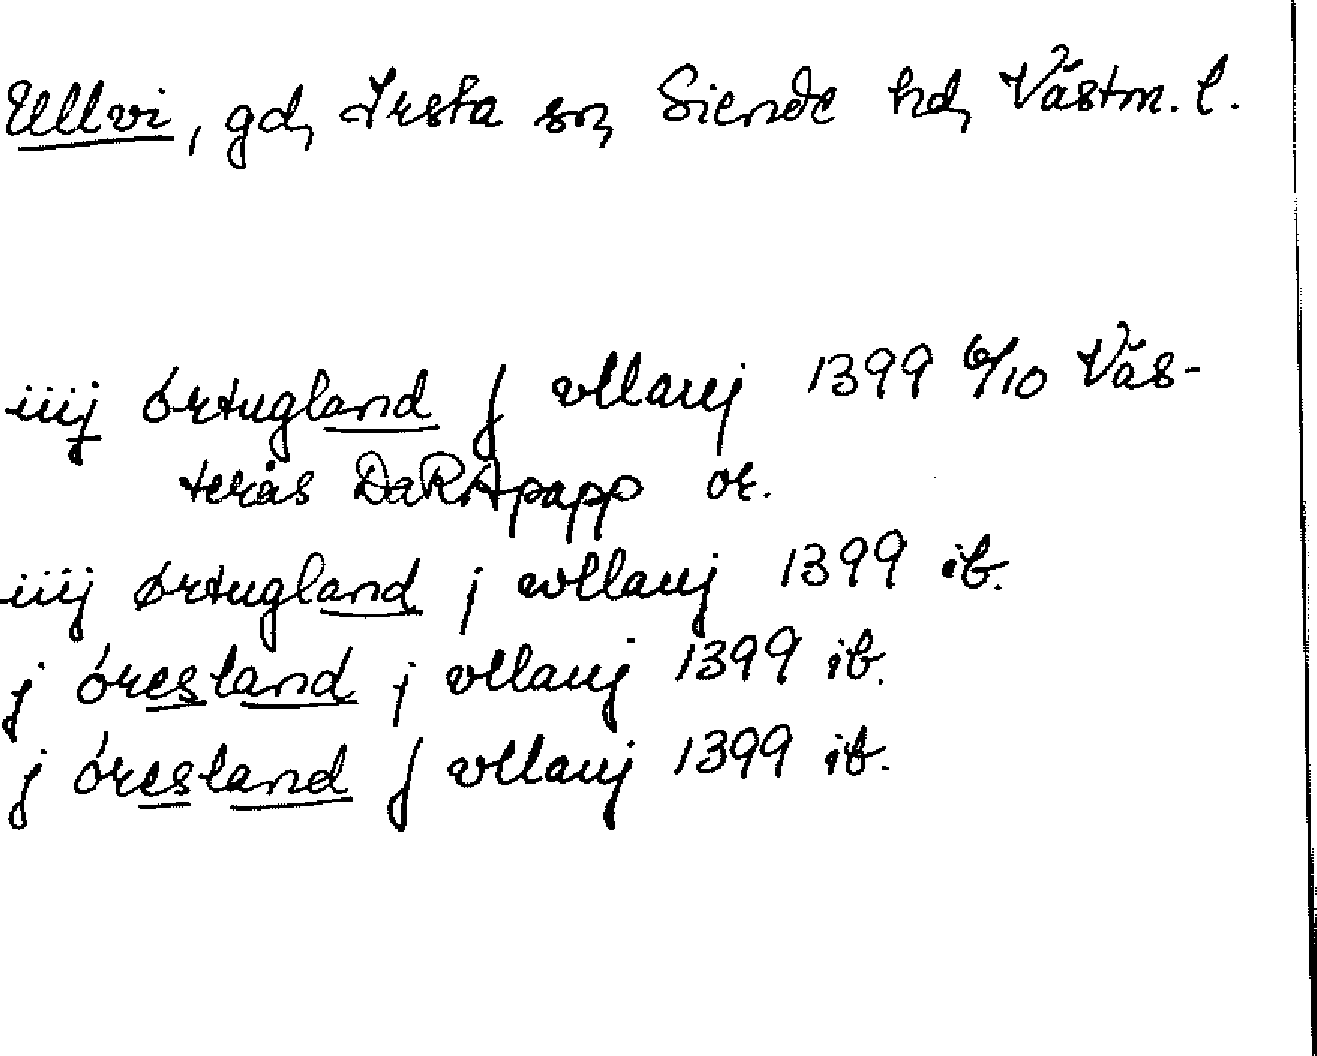 Ullvi, gd, Irsta sn, Siende hd, Västm. l.
iiij órtugland j vllauj 1399 6/10 Väs-
terås DaRApapp or.
iiij ørtugland j vllauj 1399 ib.
j óresland j vllauj 1399 ib.
j óresland j vllauj 1399 ib.